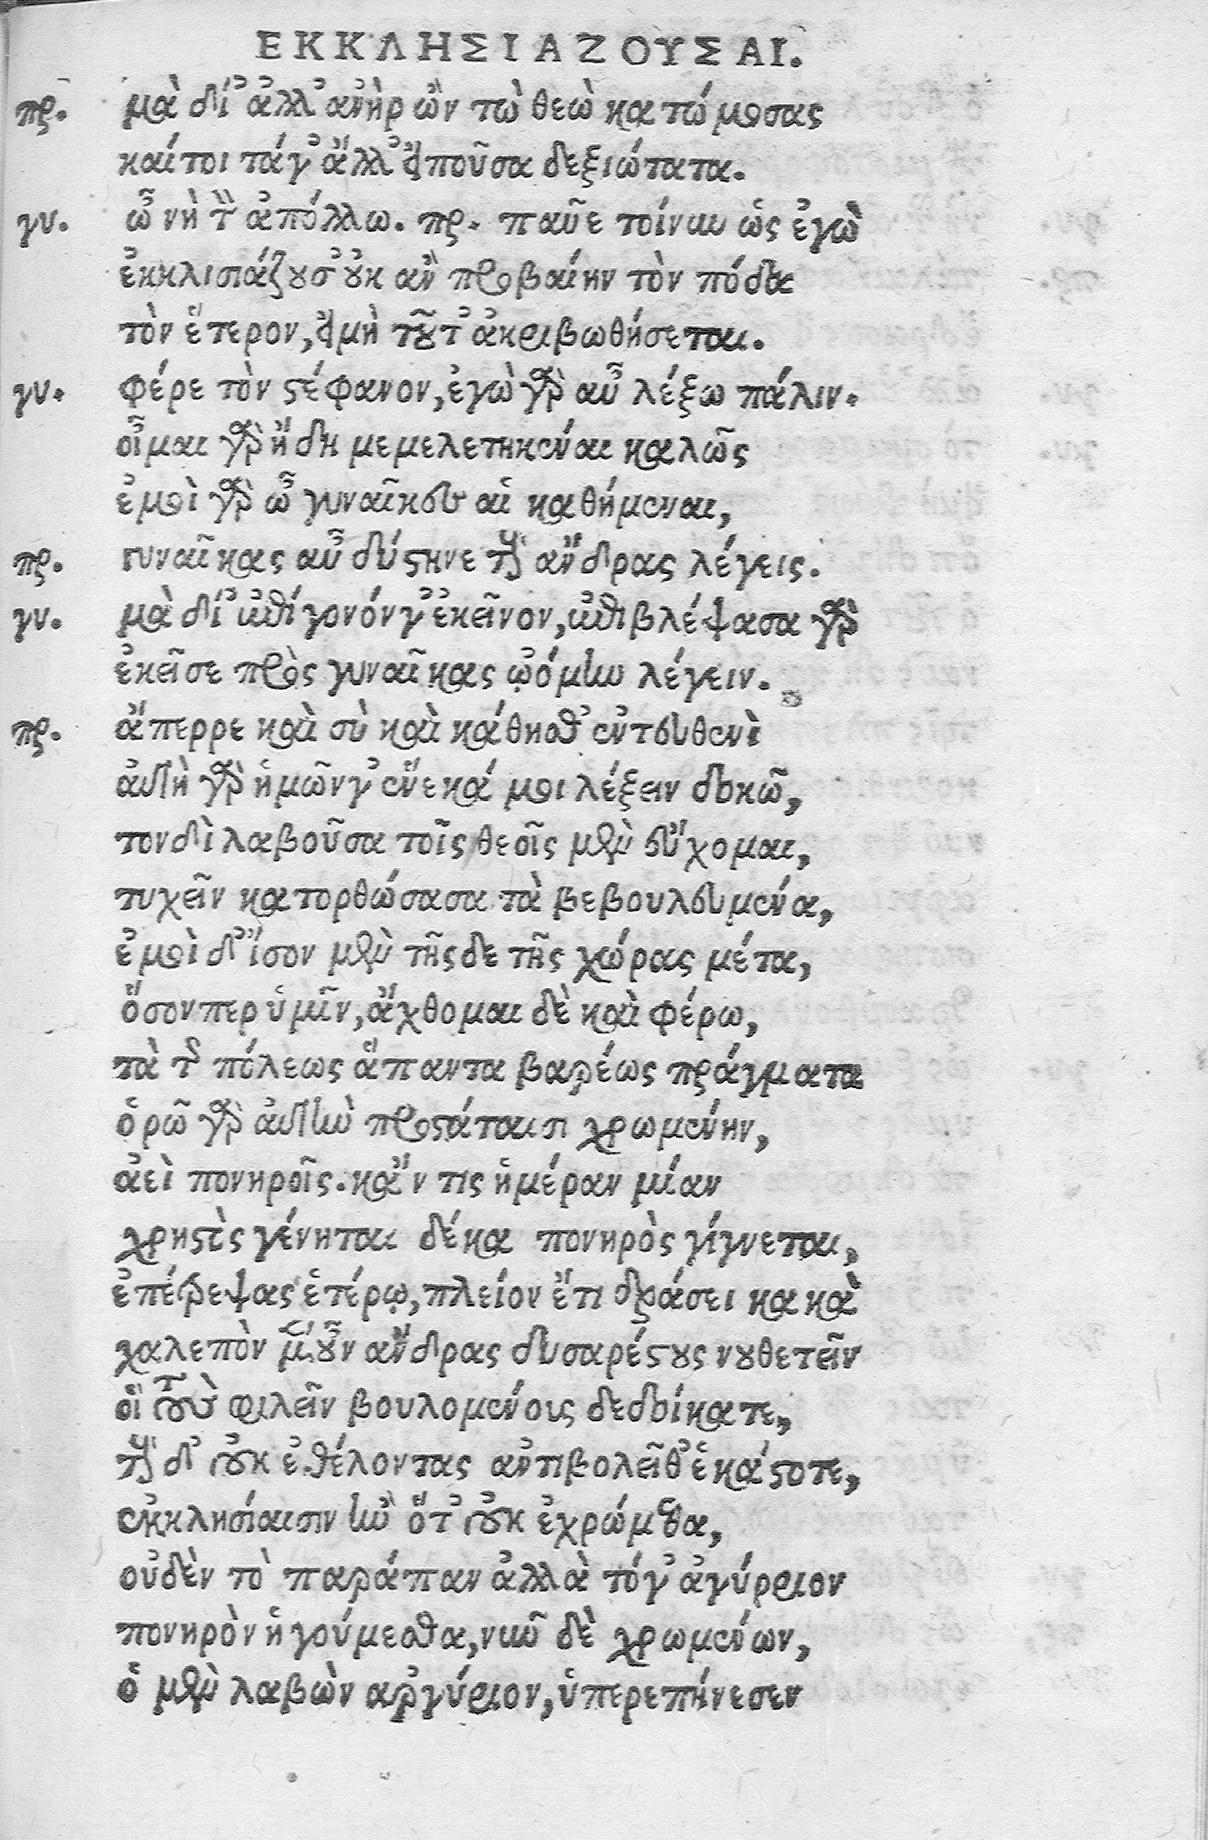 ΕΚΚΛΗΣΙΑΖΟΥΣΑΙ.
πρ. μὰ δί' ἀλλ' ἀνὴρ ὢν τὼ θεὼ κατώμοσας
καίτοι τά γ' ἄλλ' εἰποῦσα δεξιώτατα.
γυ. ὦ νὴ τὸν ἀπόλλω. πρ. παῦε τοίνυν ὡς ἐγὼ
ἐκκλισιάζουσ' οὐκ ἂν προβαίην τὸν πόδα
τὸν ἕτερον, εἰ μὴ τοῦτ' ἀκριβωθήσεται.
γυ. φέρε τὸν στέφανον, ἐγὼ γὰρ αὖ λέξω πάλιν.
οἶμαι γὰρ ἤδη μεμελετηκέναι καλῶς
ἐμοὶ γὰρ ὦ γυναῖκες αἱ καθήμεναι,
πρ. γυναῖκας αὖ δύστηνε τοὺς ἄνδρας λέγεις.
γυ. μὰ δί' ἐπίγονόν γ' ἐκεῖνον, ἐπιβλέψασα γὰρ
ἐκεῖσε πρὸς γυναῖκας ᾠόμην λέγειν.
πρ. ἄπερρε καὶ σὺ καὶ κάθησθ' ἐντευθενὶ
αὐτὴ γὰρ ἡμῶν γ' ἕνεκά μοι λέξειν δοκῶ,
τονδὶ λαβοῦσα τοῖς θεοῖς μὲν εὔχομαι,
τυχεῖν κατορθώσασα τὰ βεβουλευμένα,
ἐμοὶ δ' ἴσον μὲν τῆς δε τῆς χώρας μέτα,
ὅσον περ ὑμῖν, ἄχθομαι δὲ καὶ φέρω,
τὰ τῆς πόλεως ἅπαντα βαρέως πράγματα
ὁρῶ γὰρ αὐτὴν προστάταισι χρωμένην,
ἀεὶ πονηροῖς. κἄν τις ἡμέραν μίαν
χρηστὸς γένηται δέκα πονηρὸς γίγνεται,
ἐπέτρεψας ἑτέρῳ, πλείον ἔτι δράσει κακὰ
χαλεπὸν μὲν οὖν ἄνδρας δυσαρέστους νουθετεῖν
οἳ τοὺς φιλεῖν βουλομένοις δεδοίκατε,
τοὺς δ' οὐκ ἐθέλοντας ἀντιβολεῖθ' ἑκάστοτε,
ἐκκλησίαισιν ἦν ὅτ' οὐκ ἐχρώμεθα,
οὐδὲν τὸ παράπαν ἀλλὰ τόγ' ἀγύρριον
πονηρὸν ἡγούμεσθα, νῦν δὲ χρωμένων,
ὁ μὲν λαβὼν ἀργύριον, ὑπερεπήνεσεν